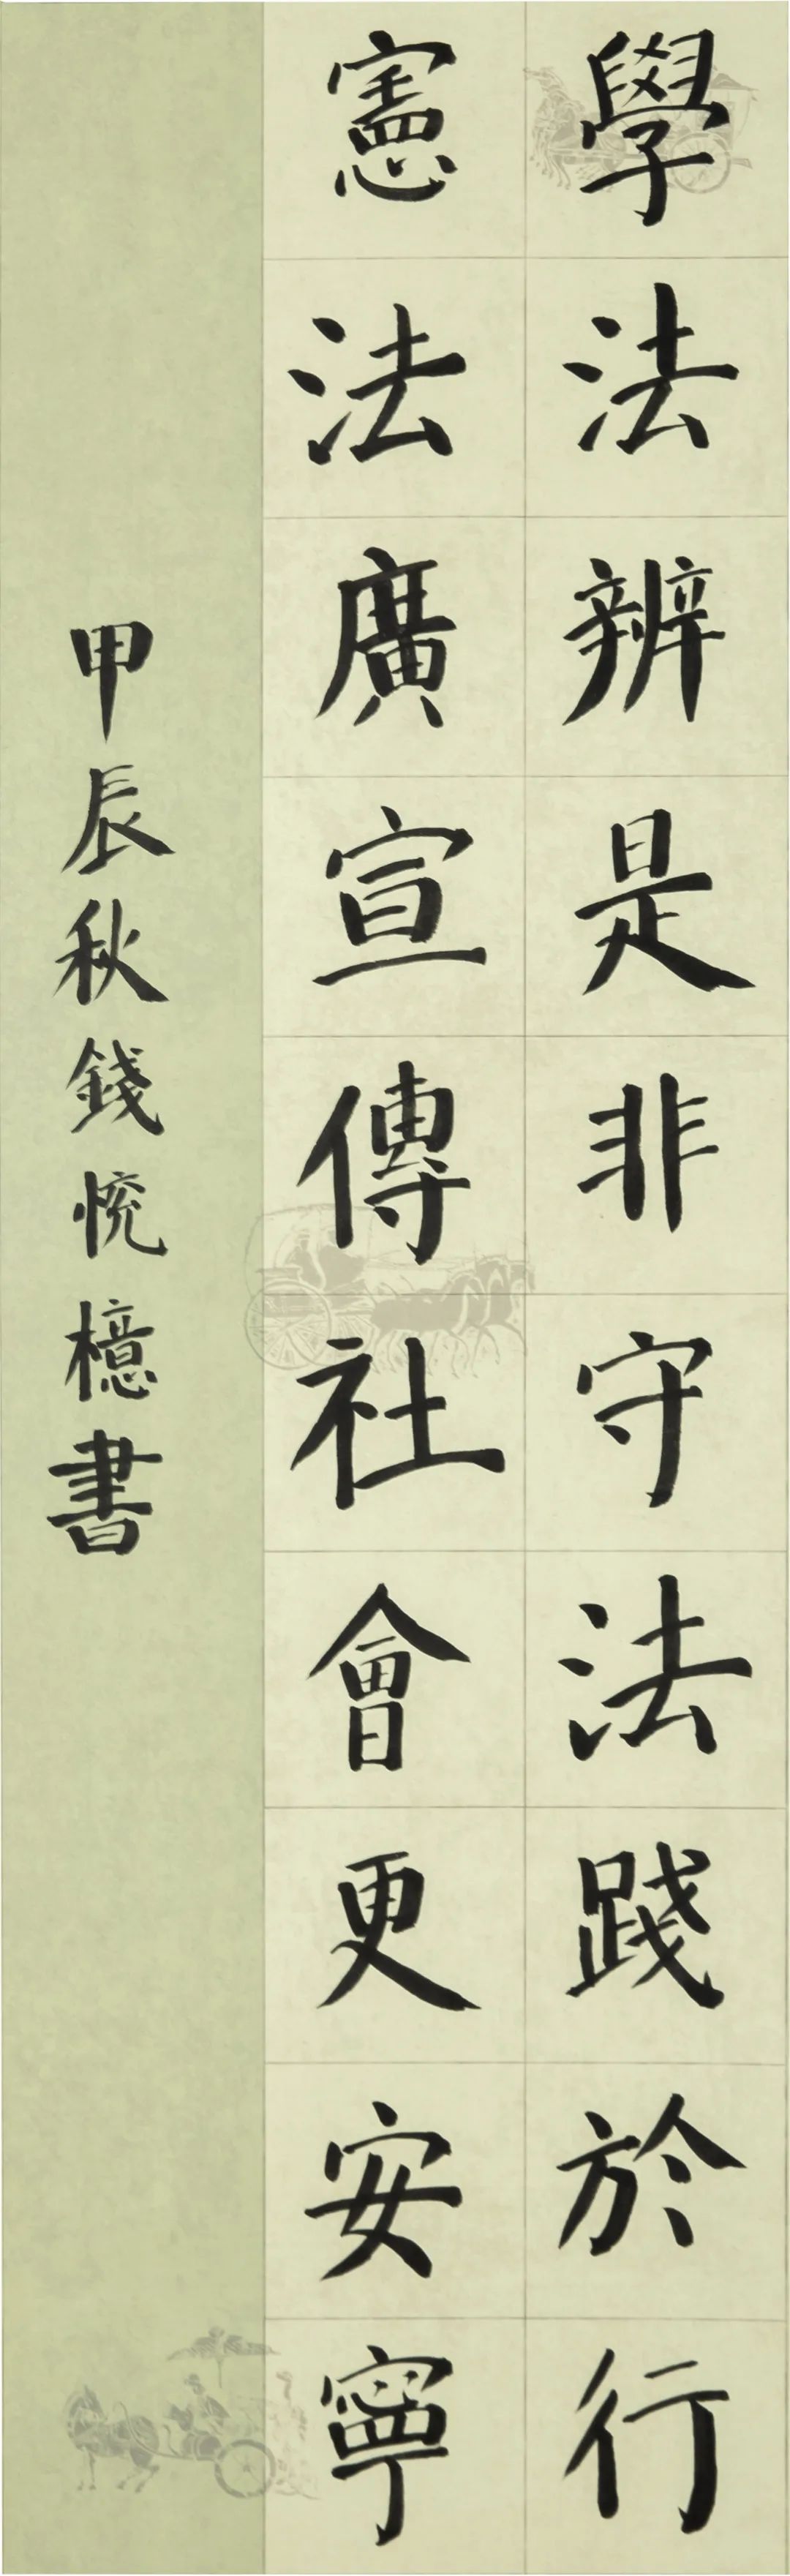 學法辨是非守法踐於行
憲法廣宣傳社會更安寧
甲辰秋錢悅檍書